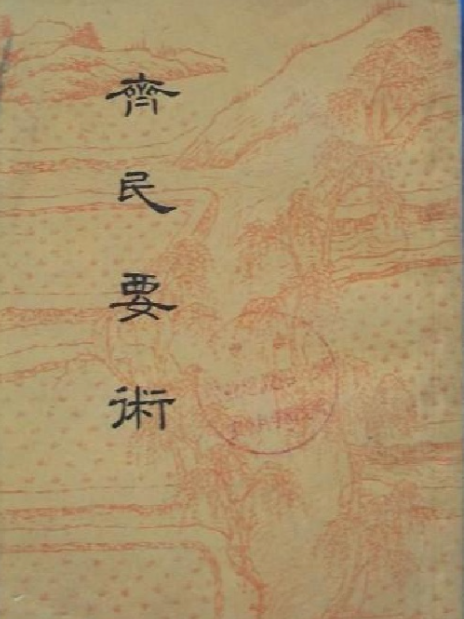 齊民要術